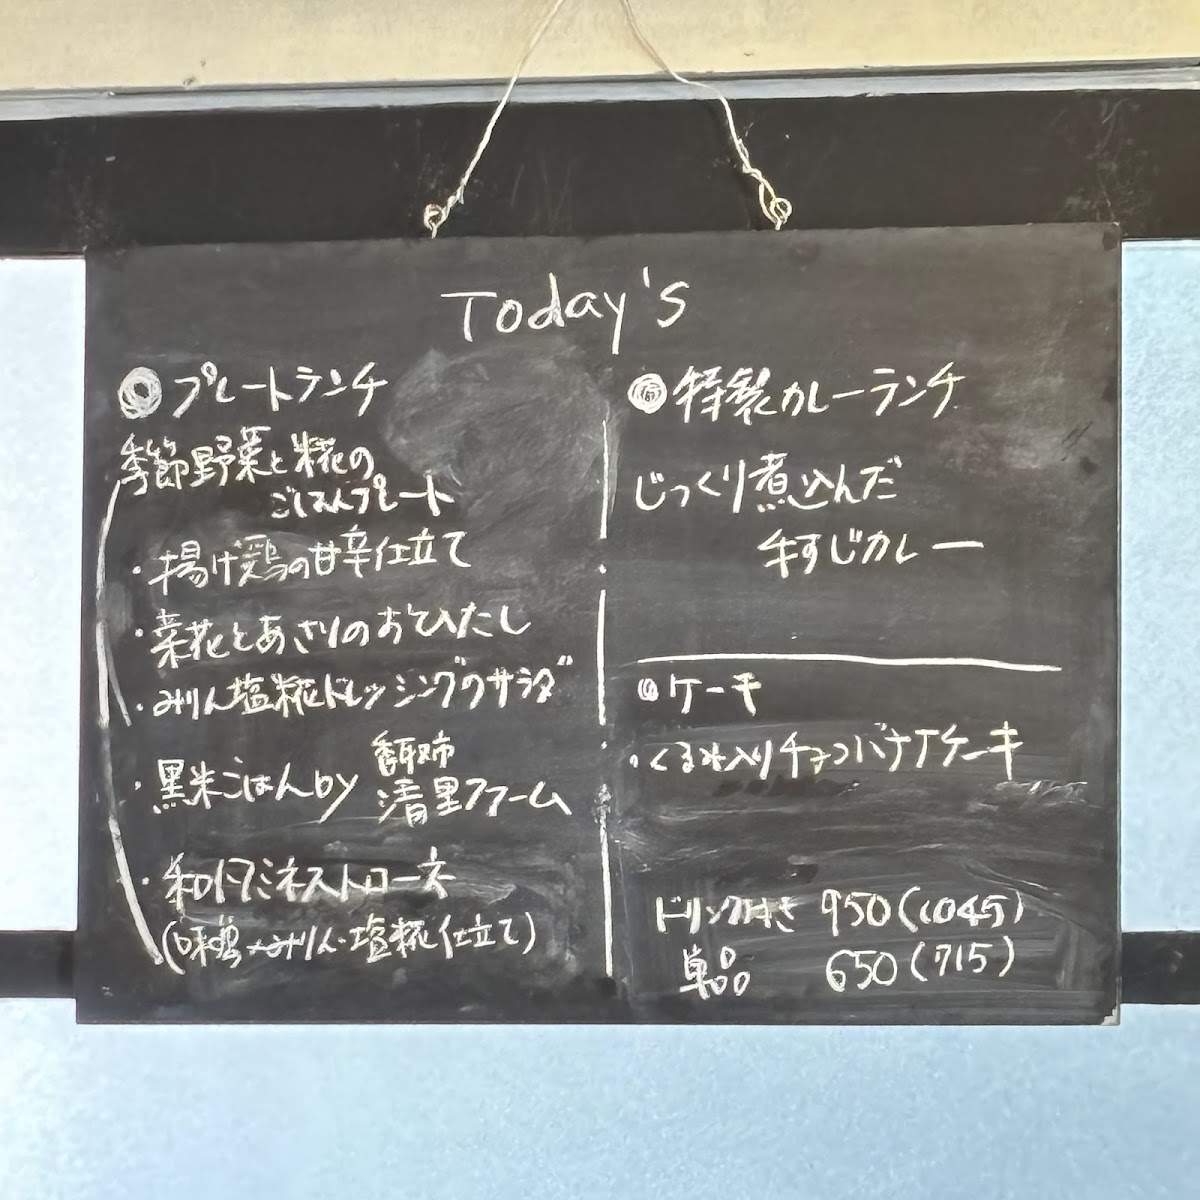 Today's
◎プレートランチ
季節野菜と糀の
ごはんプレート
・揚げ鶏の甘辛仕立て
・菜花とあさりのおひたし
・みりん塩糀ドレッシングのサラダ
・黒米ごはんby 香取市
清里ファーム
・和トマミネストローネ
(味噌×みりん・塩糀仕立て)
◎特製カレーランチ
じっくり煮込んだ
牛すじカレー
◎ケーキ
・くるみ入りチョコバナナケーキ
ドリンク付き 950(1045)
単品 650(715)